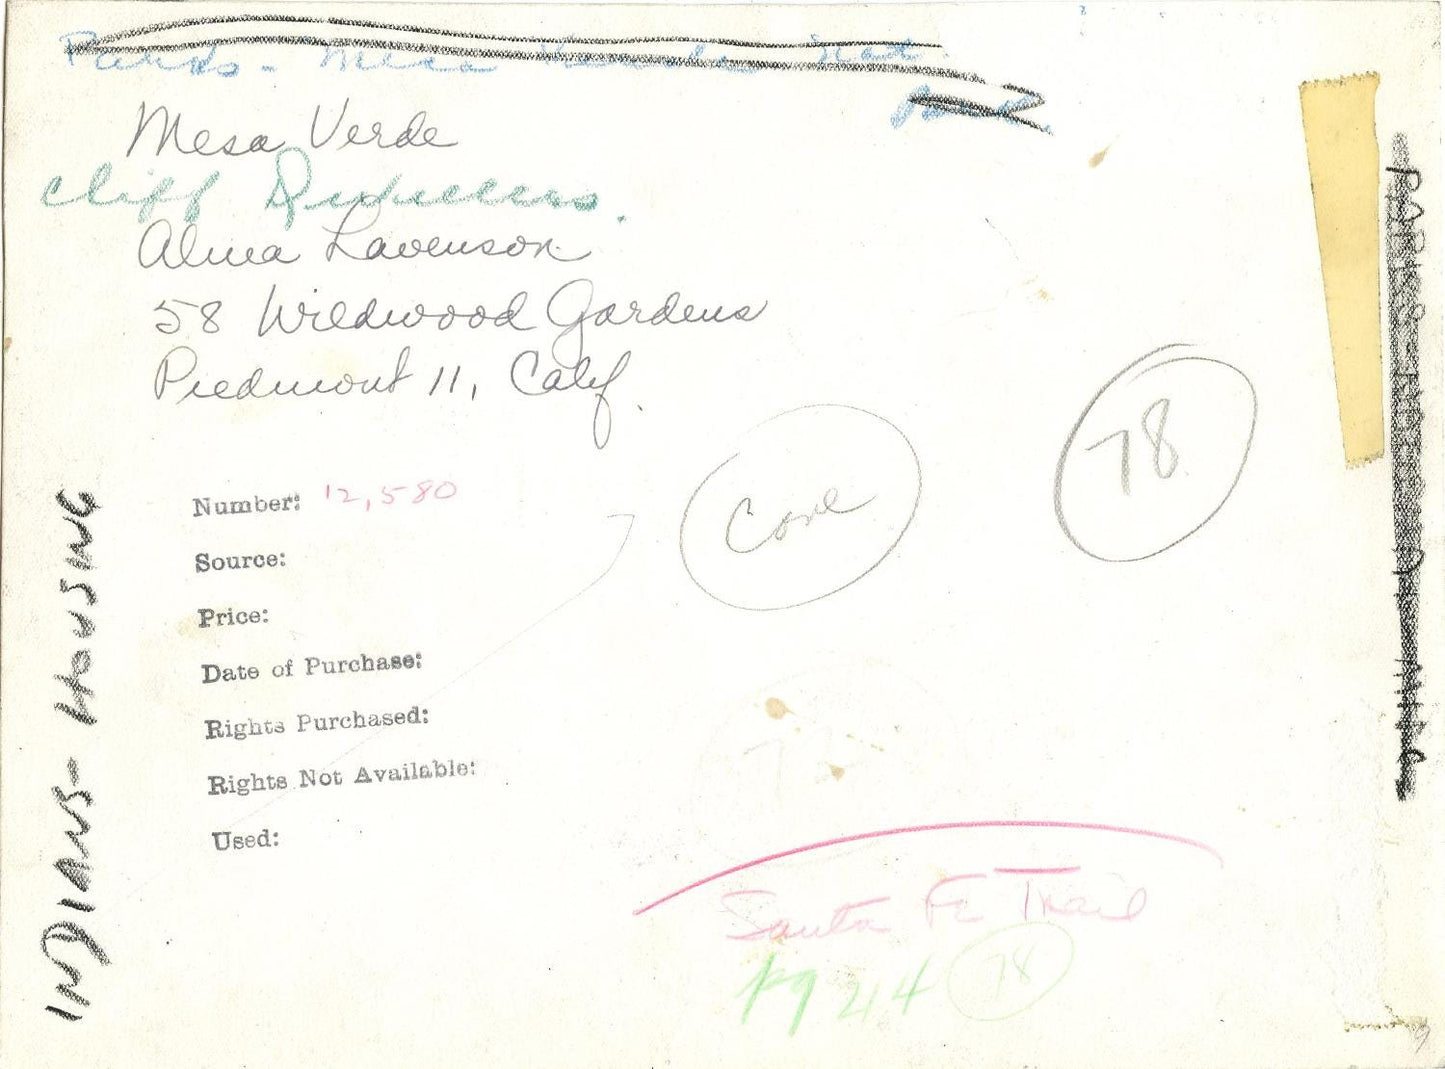 Parks - Mesa Verde Nat.
Park.
Mesa Verde
Cliff Dwellers.
Alma Lavenson
58 Wildwood Gardens
Piedmont 11, Calif.
78
Number: 12,580
Source:
Price:
Date of Purchase:
Rights Purchased:
Rights Not Available:
Used:
INDIANS - HOUSING
PARKS -
Santa Fe Trail
78